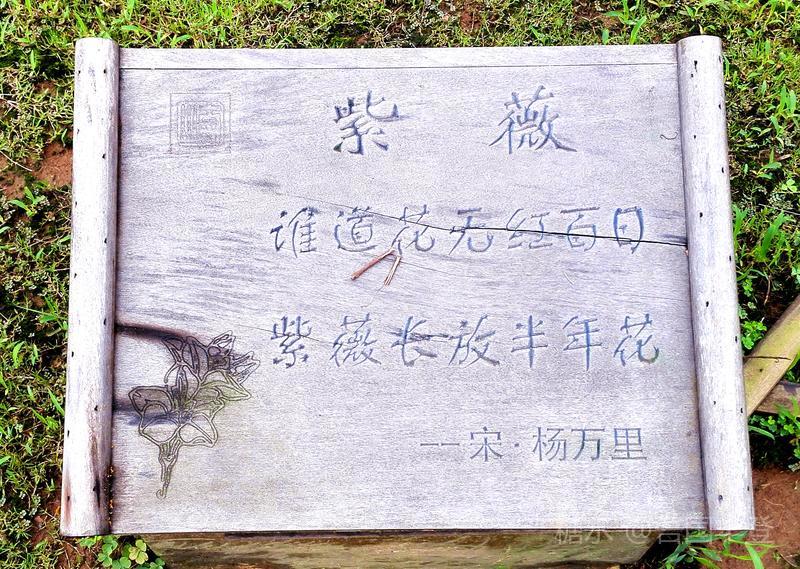 紫薇
谁道花无红百日
紫薇长放半年花
——宋·杨万里